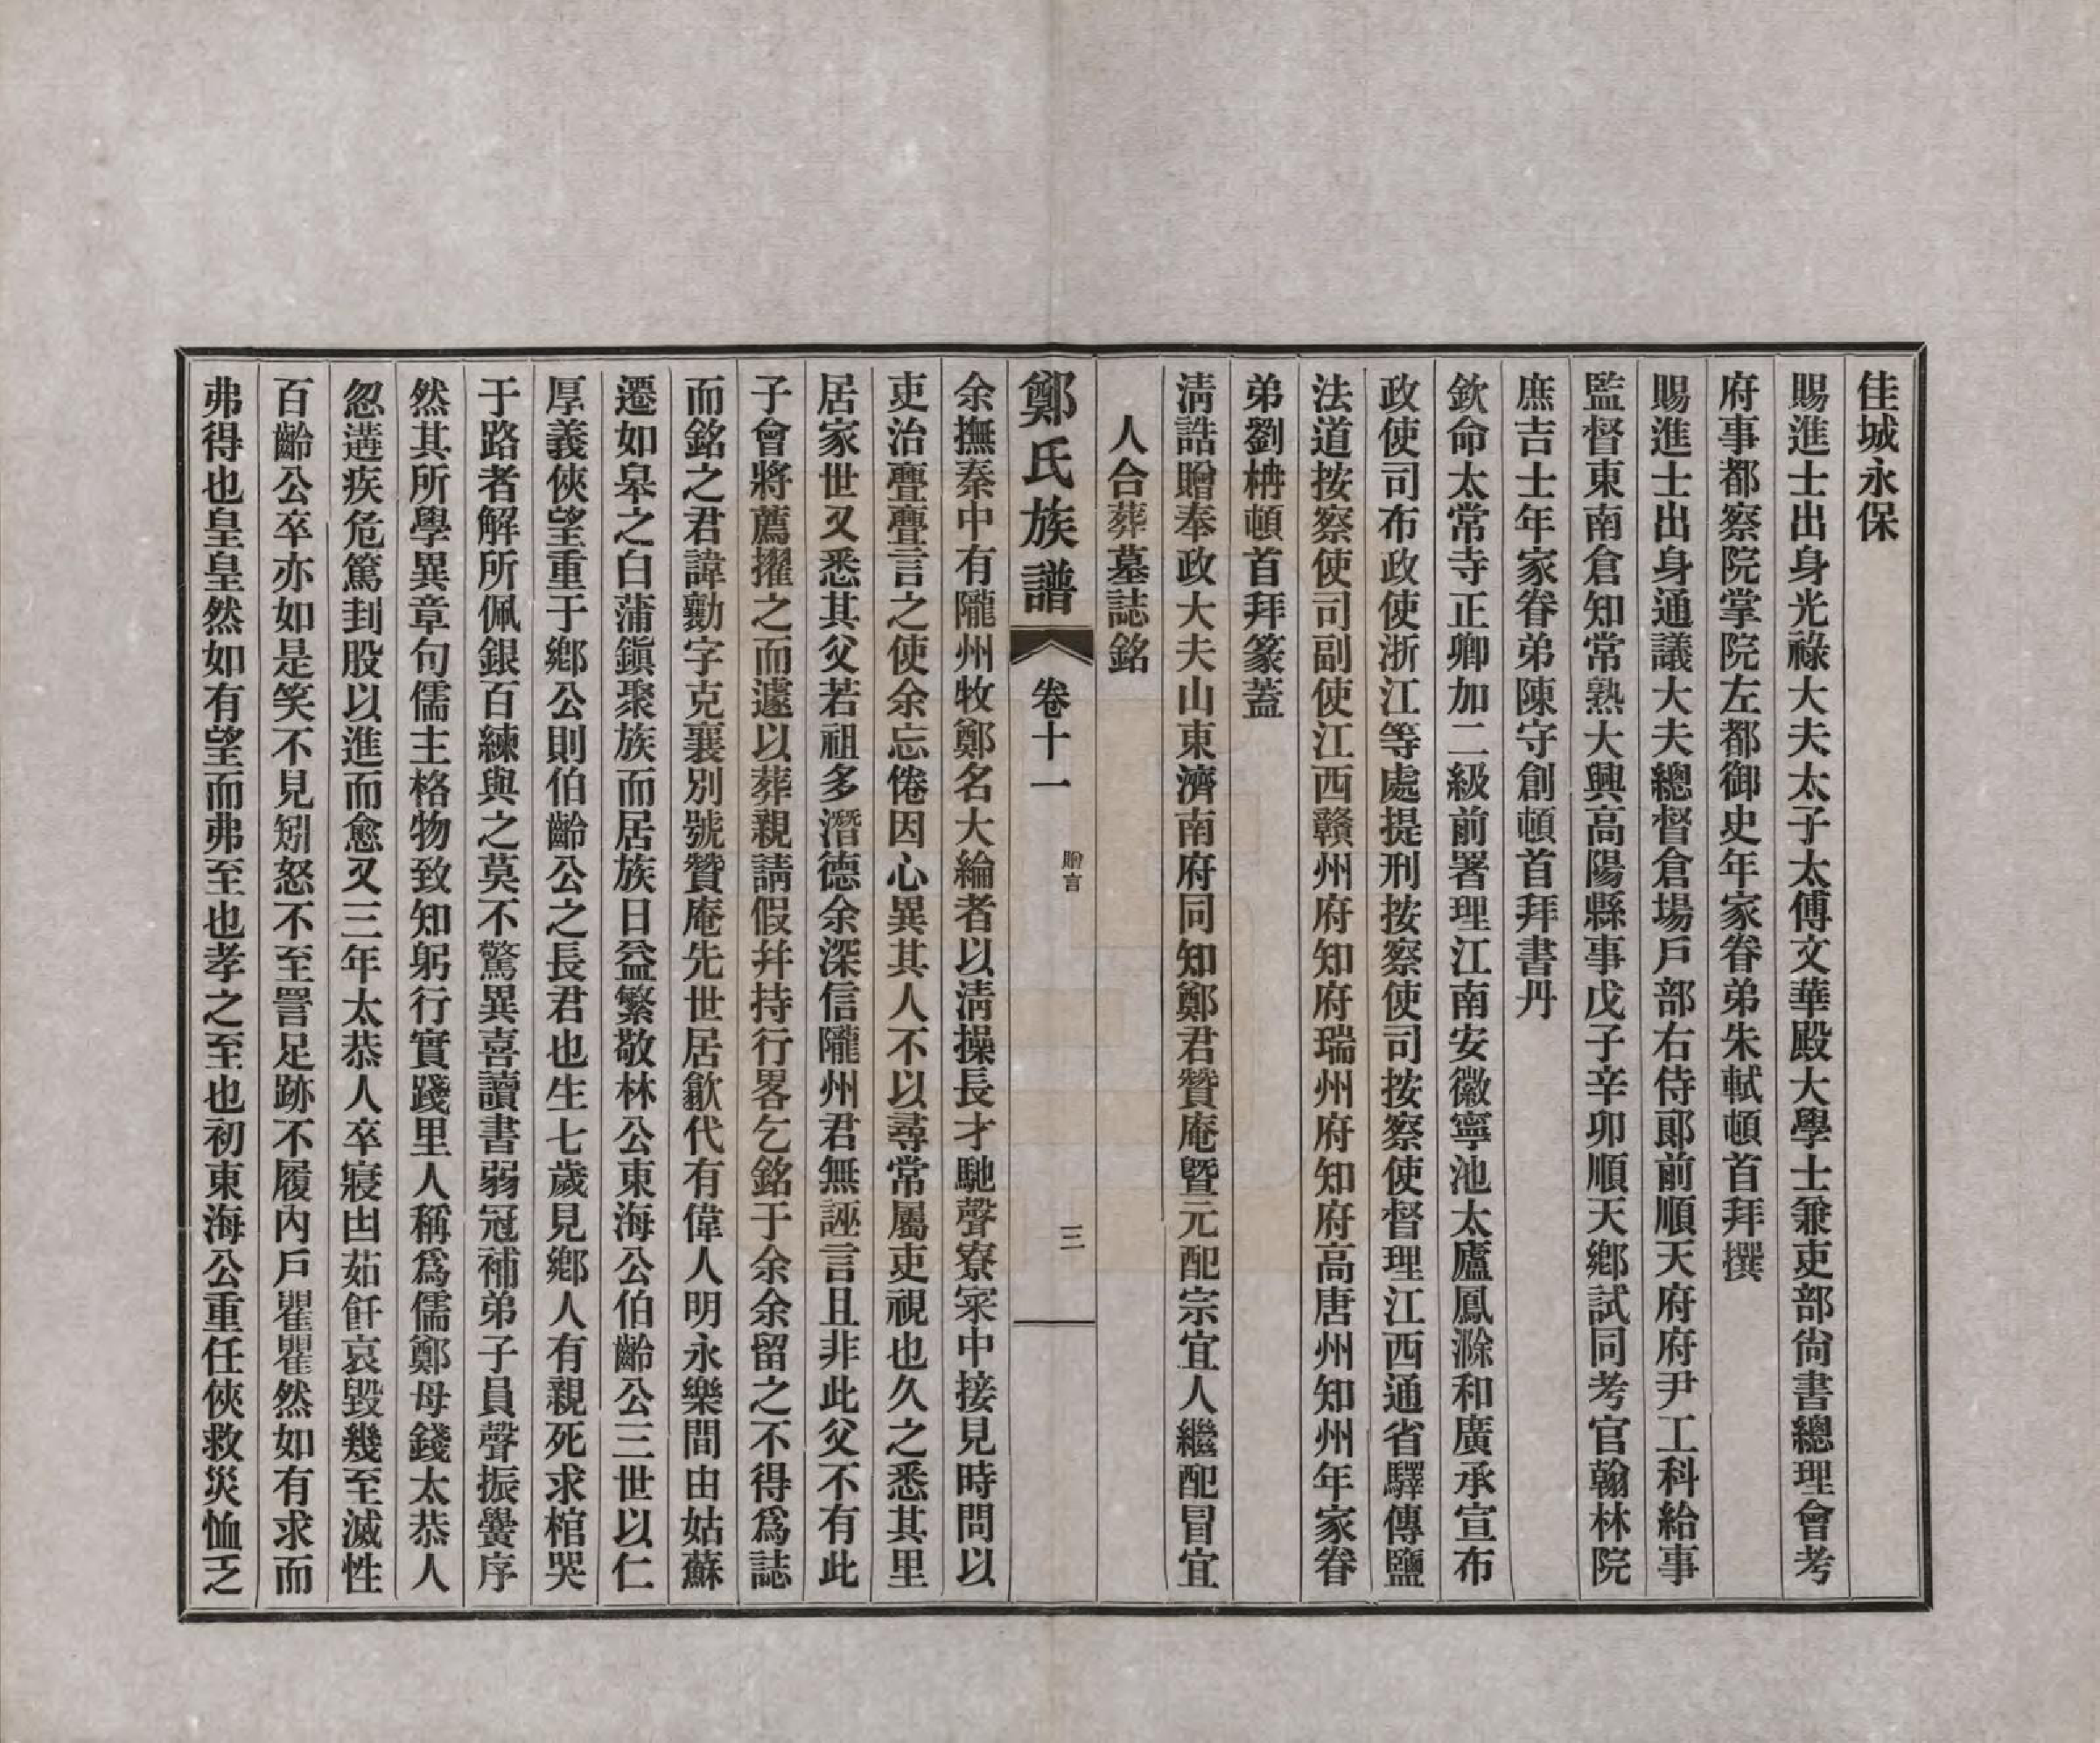 佳城永保
賜進士出身光祿大夫太子太傅文華殿大學士兼吏部尙書總理會考
府事都察院掌院左都御史年家眷弟朱軾頓首拜撰
賜進士出身通議大夫總督倉場戶部右侍郞前順天府府尹工科給事
監督東南倉知常熟大興高陽縣事戊子辛卯順天鄕試同考官翰林院
庶吉士年家眷弟陳守創頓首拜書丹
欽命太常寺正卿加二級前署理江南安徽寧池太廬鳳滁和廣承宣布
政使司布政使浙江等處提刑按察使司按察使督理江西通省驛傳鹽
法道按察使司副使江西贛州府知府瑞州府知府高唐州知州年家眷
弟劉枏頓首拜篆蓋
淸誥贈奉政大夫山東濟南府同知鄭君贊庵曁元配宗宜人繼配冒宜
人合葬墓誌銘
鄭氏族譜 卷十一 贈言 三
余撫秦中有隴州牧鄭名大綸者以淸操長才馳聲寮寀中接見時問以
吏治亹亹言之使余忘倦因心異其人不以尋常屬吏視也久之悉其里
居家世又悉其父若祖多潛德余深信隴州君無誣言且非此父不有此
子會將薦擢之而遽以葬親請假幷持行畧乞銘于余余留之不得爲誌
而銘之君諱勷字克襄別號贊庵先世居歙代有偉人明永樂間由姑蘇
遷如皋之白蒲鎭聚族而居族日益繁敬林公東海公伯齡公三世以仁
厚義俠望重于鄕公則伯齡公之長君也生七歲見鄕人有親死求棺哭
于路者解所佩銀百練與之莫不驚異喜讀書弱冠補弟子員聲振黌序
然其所學異章句儒主格物致知躬行實踐里人稱爲儒鄭母錢太恭人
忽遘疾危篤刲股以進而愈又三年太恭人卒寢凷茹飦哀毀幾至滅性
百齡公卒亦如是笑不見矧怒不至詈足跡不履內戶瞿瞿然如有求而
弗得也皇皇然如有望而弗至也孝之至也初東海公重任俠救災恤乏